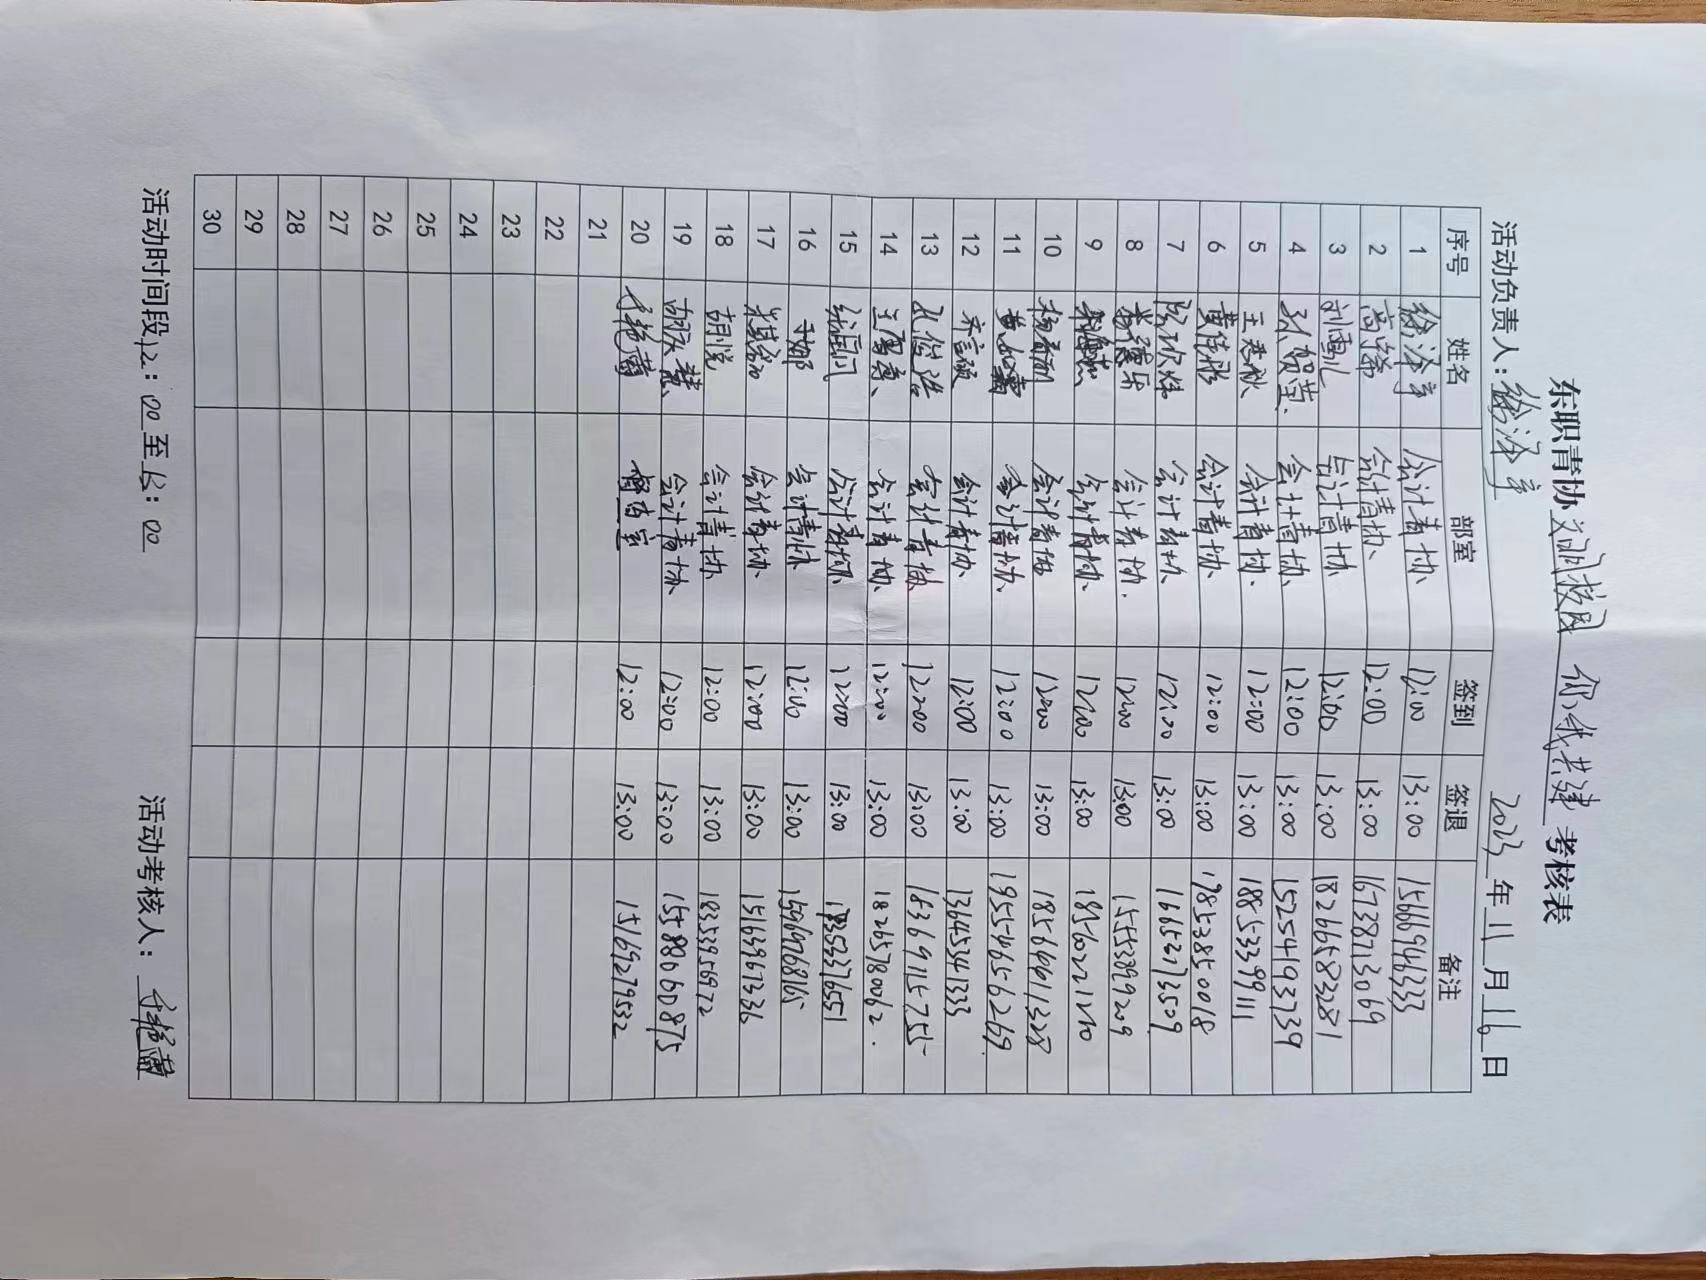 东职青协文明校园 你我共建考核表
活动负责人：徐泽亨 2023年11月16日
序号 姓名 部室 签到 签退 备注
1 徐泽亨 会计青协 12:00 13:00 15666946333
2 高 会计青协 12:00 13:00 16738713069
3 刘雨礼 会计青协 12:00 13:00 18266583281
4 孙贺莹 会计青协 12:00 13:00 15254193739
5 王慧秋 会计青协 12:00 13:00 18853399111
6 黄 会计青协 12:00 13:00 17853850018
7 会计青协 12:00 13:00 16653273509
8 乐 会计青协 12:00 13:00 15553899209
9 会计青协 12:00 13:00
10 杨 会计青协 12:00 13:00 18566611328
11 黄 会计青协 12:00 13:00 19554656269
12 齐 会计青协 12:00 13:00 13645341333
13 孔 浩 会计青协 12:00 13:00 18369115755
14 兰 会计青协 12:00 13:00 18265780062
15 会计青协 12:00 13:00
16 于娜 会计青协 12:00 13:00 15969768165
17 会计青协 12:00 13:00 15163967336
18 胡悦 会计青协 12:00 13:00 18353956972
19 胡 慧 会计青协 12:00 13:00 15588060875
20 督查室 12:00 13:00 15169279532
21
22
23
24
25
26
27
28
29
30
活动时间段12：00至13：00 活动考核人：